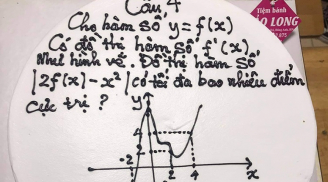 Câu 4
Tiệm bánh
BẢO LONG
Cho hàm số y = f(x)
Có đồ thị hàm số f'(x)
Như hình vẽ. Đồ thị hàm số
|2f(x) - x²| có tối đa bao nhiêu điểm
cực trị ?
y
4
2
-2
2
4
x